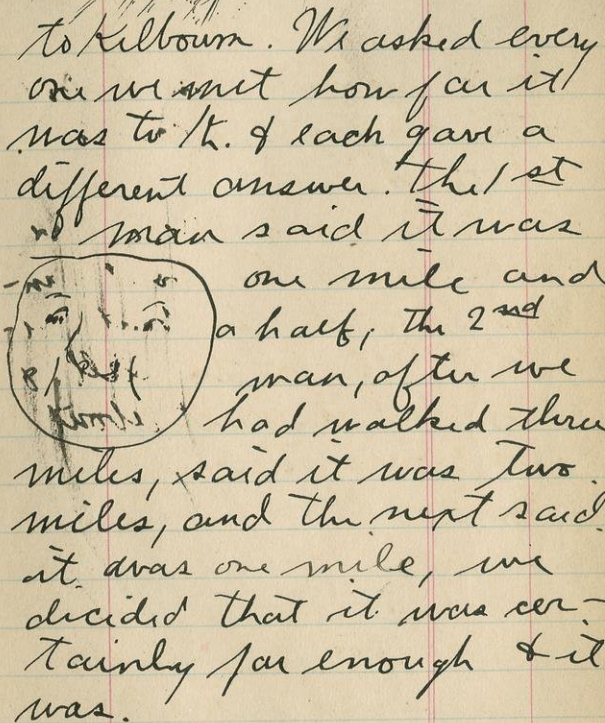 to Kilbourn. We asked every
one we met how far it
was to K. & each gave a
different answer. The 1st
man said it was
one mile and
a half, the 2nd
man, after we
had walked three
miles, said it was two
miles, and the next said
it was one mile, we
decided that it was cer-
tainly far enough & it
was.